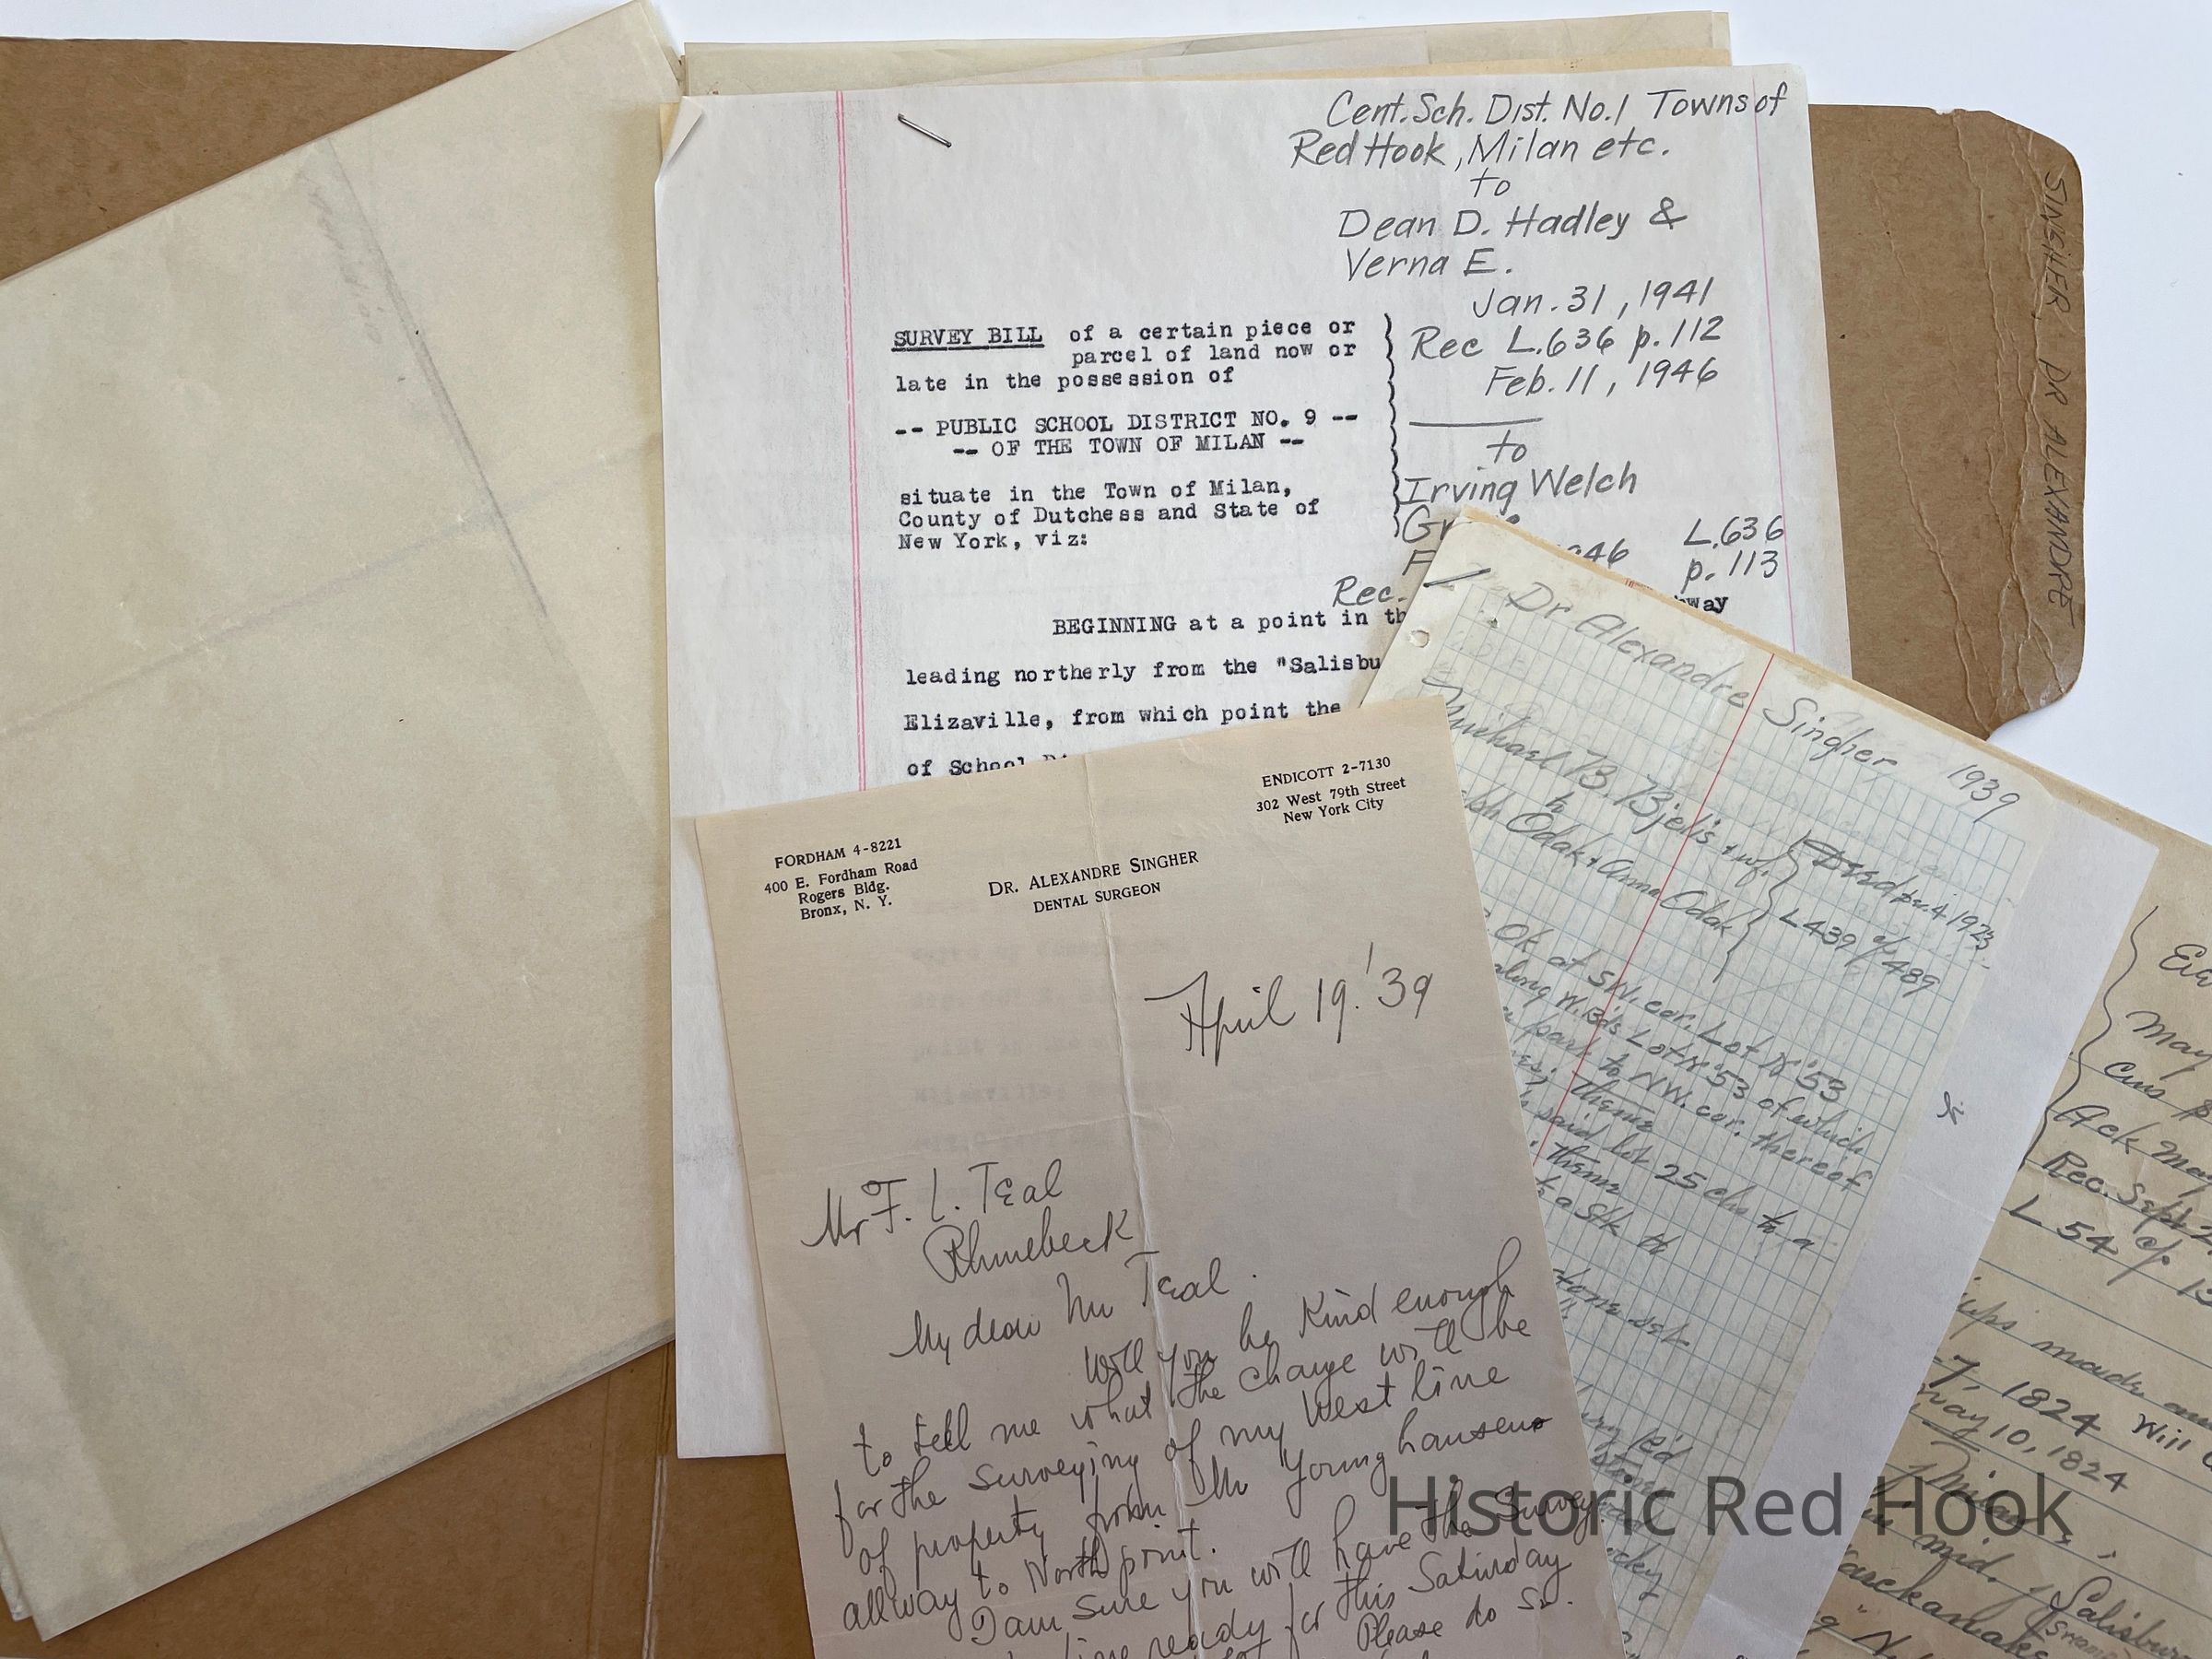 Cent. Sch. Dist. No. 1 Towns of
Red Hook, Milan etc.
to
Dean D. Hadley &
Verna E.
Jan. 31, 1941
Rec L.636 p. 112
Feb. 11, 1946
to
Irving Welch
L.636
p. 113
Rec.
SURVEY BILL of a certain piece or
parcel of land now or
late in the possession of
-- PUBLIC SCHOOL DISTRICT NO. 9 --
-- OF THE TOWN OF MILAN --
situate in the Town of Milan,
County of Dutchess and State of
New York, viz:
BEGINNING at a point in th
leading northerly from the "Salisbu
Elizaville, from which point the
of School
SINGHER, DR ALEXANDRE
Dr Alexandre Singher 1939
Michael B. Bjelis & wf.
to
Odak & Anna Odak
Deed 4, 1923
L 439 c/p 489
at SW. cor. Lot No 53
along W. Bds Lot No 53 of which
part to NW. cor. thereof
thence
said lot 25 chs to a
thence
to a stk
FORDHAM 4-8221
400 E. Fordham Road
Rogers Bldg.
Bronx, N. Y.
ENDICOTT 2-7130
302 West 79th Street
New York City
DR. ALEXANDRE SINGHER
DENTAL SURGEON
April 19. '39
Mr F. L. Teal
Rhinebeck
My dear Mr Teal.
Will you be kind enough
to tell me what the charge will be
for the surveying of my West line
of property from Mr Younghansens
allway to North point.
I am sure you will have the survey
line ready for this Saturday
Please do so.
May
Ack May
Rec. Sept 2
L 54 c/p 13
made
7, 1824 Will
May 10, 1824
Milan
mid. of Salisbury
Historic Red Hook